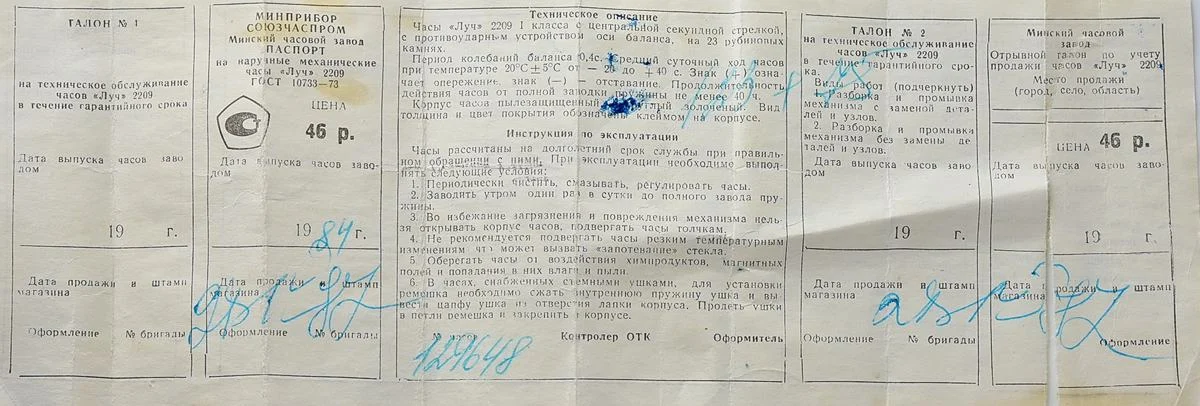 ТАЛОН № 1
на техническое обслуживание
часов «Луч» 2209
в течение гарантийного срока
Дата выпуска часов заво
дом
19 г.
Дата продажи и штамп
магазина
Оформление № бригады
МИНПРИБОР
СОЮЗЧАСПРОМ
Минский часовой завод
ПАСПОРТ
на наручные механические
часы «Луч» 2209
ГОСТ 10733—73
ЦЕНА
46 р.
Дата выпуска часов заво
дом
19 84 г.
Дата продажи и штамп
магазина
Оформление № бригады
Техническое описание
Часы «Луч» 2209 I класса с центральной секундной стрелкой,
с противоударным устройством оси баланса, на 23 рубиновых
камнях.
Период колебаний баланса 0,4с. Средний суточный ход часов
при температуре 20°С±5°С от — 20 до +40 с. Знак (+) озна-
чает опережение, знак (—) — отставание. Продолжительность
действия часов от полной заводки пружины не менее 40 ч.
Корпус часов пылезащитный, золоченый. Вид
толщина и цвет покрытия обозначены клеймом на корпусе.
Инструкция по эксплуатации
Часы рассчитаны на долголетний срок службы при правиль-
ном обращении с ними. При эксплуатации необходимо выпол-
нять следующие условия:
1. Периодически чистить, смазывать, регулировать часы.
2. Заводить утром один раз в сутки до полного завода пру-
жины.
3. Во избежание загрязнения и повреждения механизма нель-
зя открывать корпус часов, подвергать часы толчкам.
4. Не рекомендуется подвергать часы резким температурным
изменениям что может вызвать «запотевание» стекла.
5. Оберегать часы от воздействия химпродуктов, магнитных
полей и попадания в них влаги и пыли.
6. В часах, снабженных съемными ушками, для установки
ремешка необходимо сжать внутреннюю пружину ушка и вы-
вести цапфу ушка из отверстия лапки корпуса. Продеть ушки
в петли ремешка и закрепить в корпусе.
№ часов Контролер ОТК Оформитель
129648
ТАЛОН № 2
на техническое обслуживание
часов «Луч» 2209
в течение гарантийного сро-
ка.
Виды работ (подчеркнуть)
1. Разборка и промывка
механизма с заменой дета-
лей и узлов.
2. Разборка и промывка
механизма без замены де-
талей и узлов.
Дата выпуска часов заво
дом
19 г.
Дата продажи и штамп
магазина
Оформление № бригады
Минский часовой
завод
Отрывной талон по учету
продажи часов «Луч» 2209
Место продажи
(город, село, область)
ЦЕНА 46 р.
Дата выпуска часов заво-
дом
19 г.
Дата продажи и штамп
магазина
Оформление